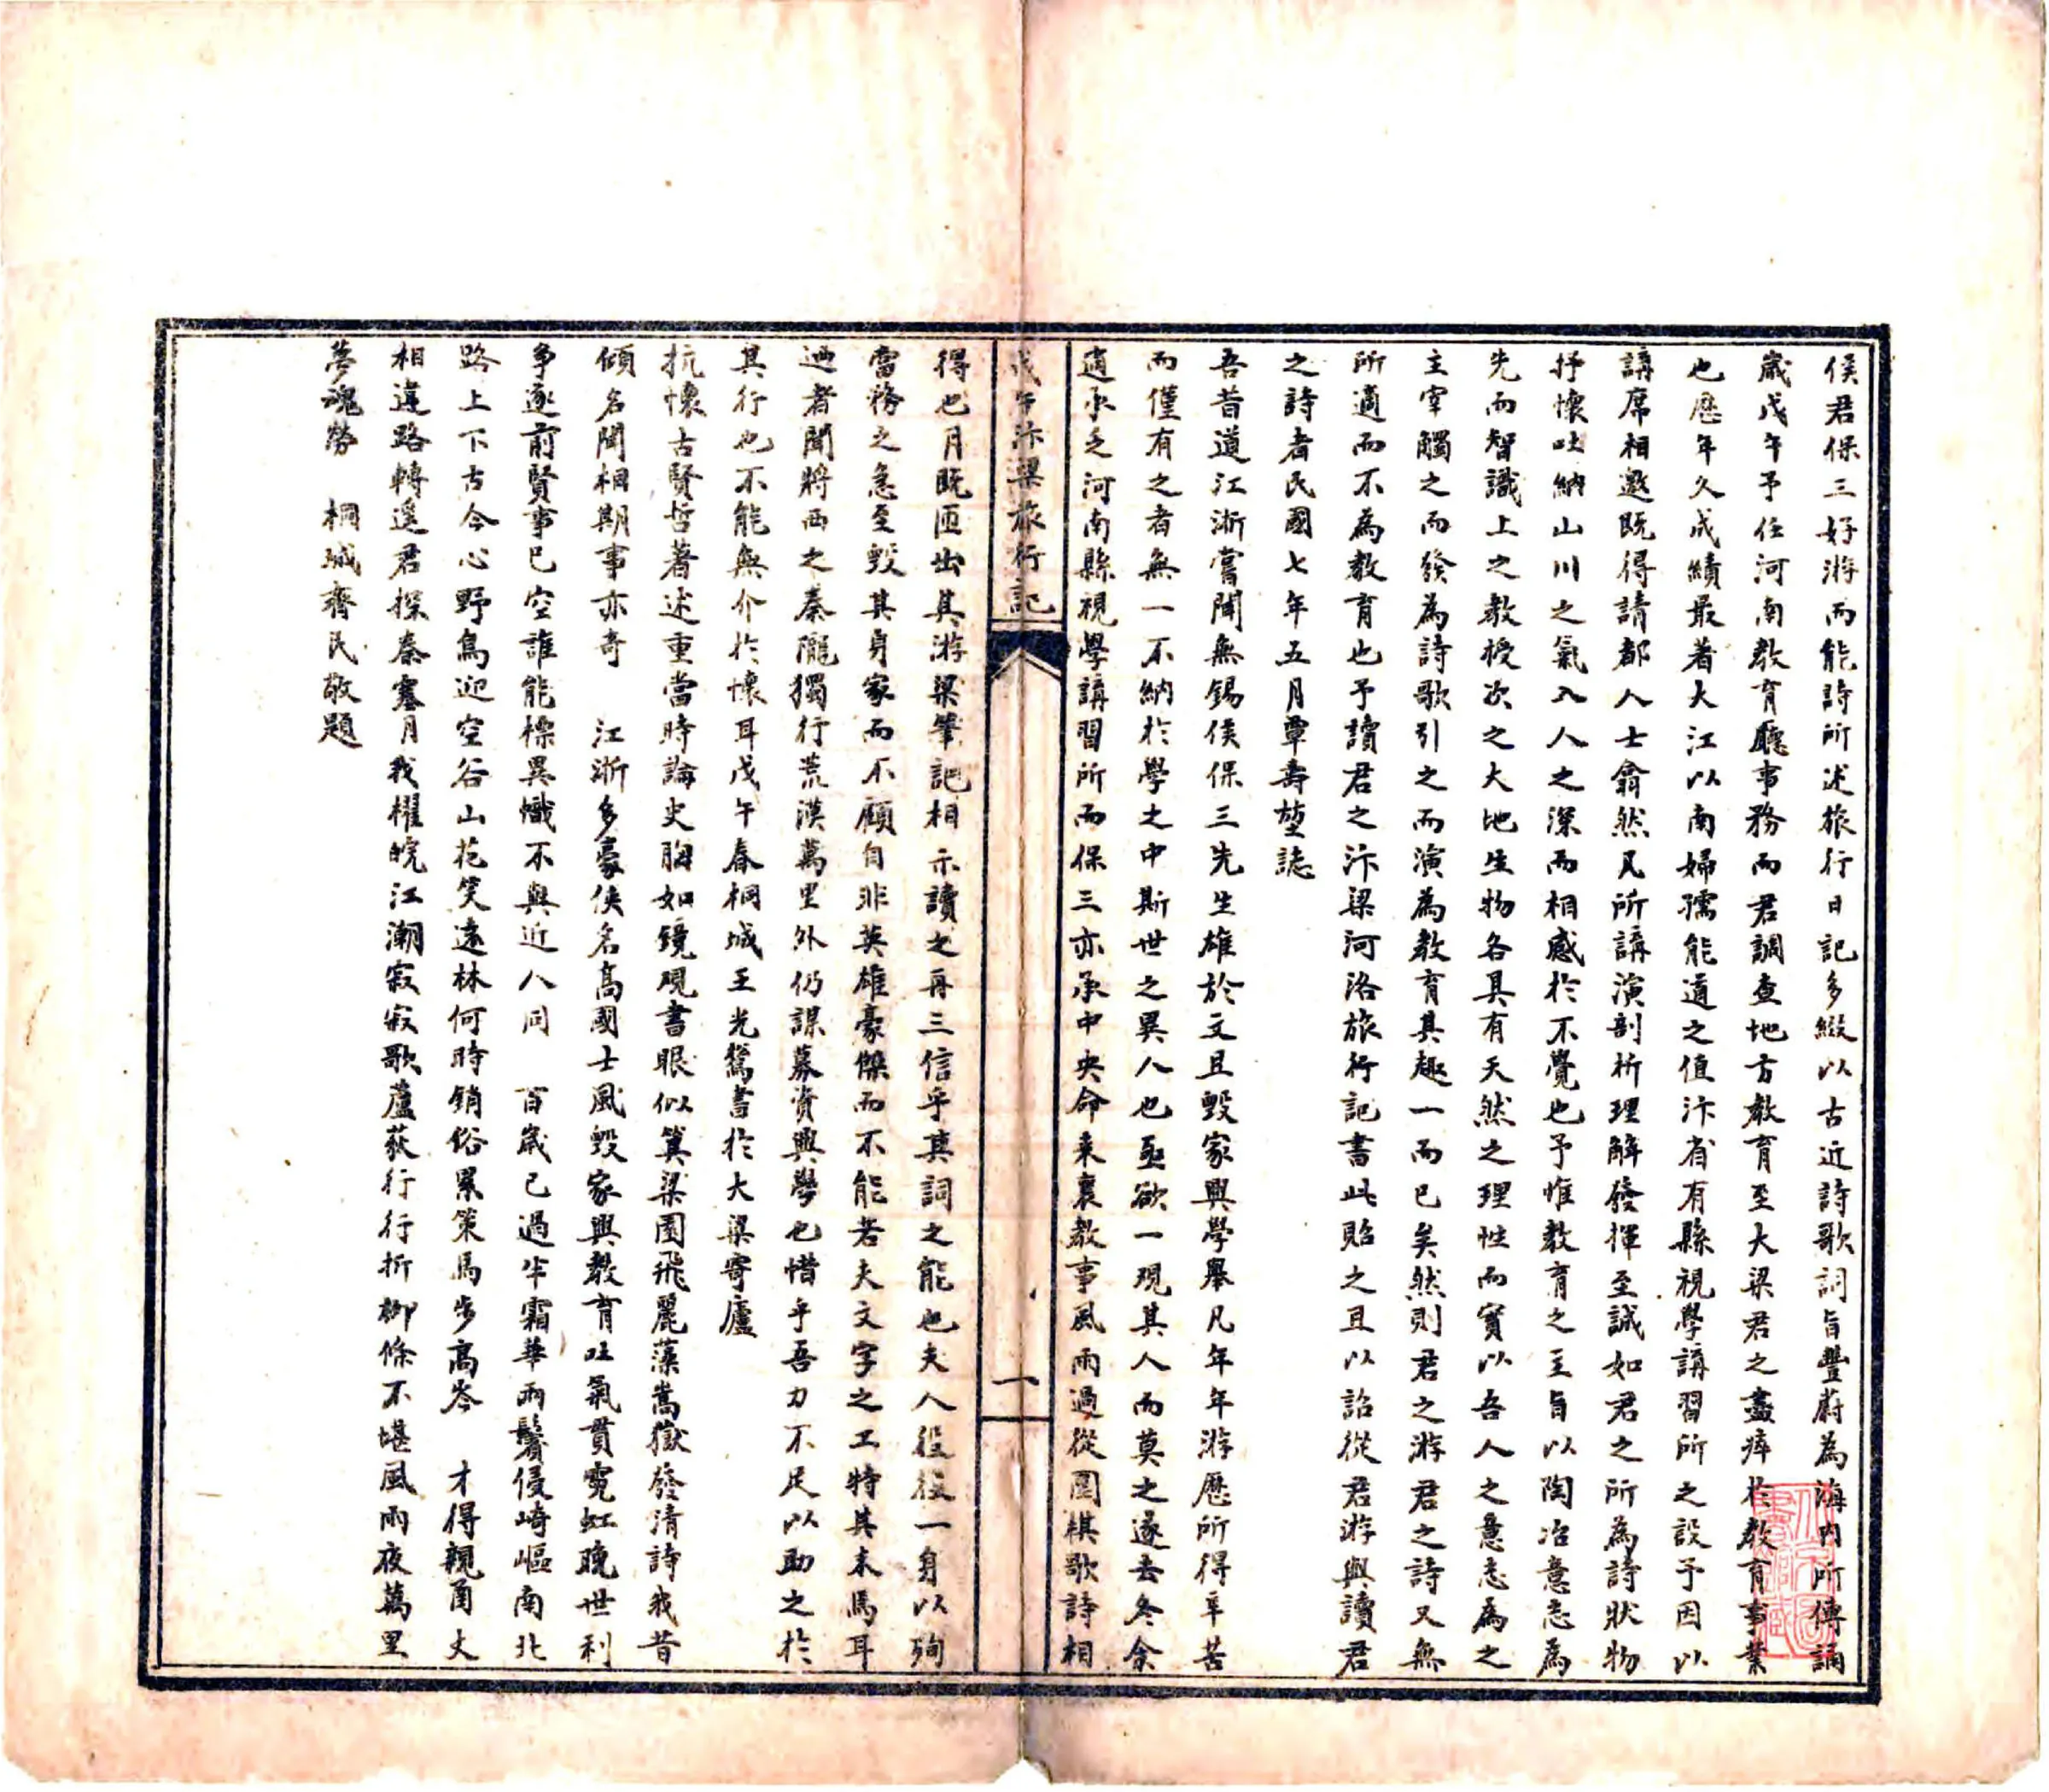 侯君保三好游而能詩所述旅行日記多綴以古近詩歌詞旨豐蔚為海內所傳誦
歲戊午予任河南教育廳事務而君調查地方教育至大梁君之盡瘁於教育事業
也歷年久成績最著大江以南婦孺能道之值汴省有縣視學講習所之設予因以
講席相邀既得請都人士翕然凡所講演剖析理解發揮至誠如君之所為詩狀物
抒懷吐納山川之氣入人之深而相感於不覺也予惟教育之主旨以陶冶意志為
先而智識上之教授次之大地生物各具有天然之理性而實以吾人之意志為之
主宰觸之而發為詩歌引之而演為教育其趣一而已矣然則君之游君之詩又無
所適而不為教育也予讀君之汴梁河洛旅行記書此貽之且以詒從君游與讀君
之詩者民國七年五月覃壽堃誌
吾昔道江浙嘗聞無錫侯保三先生雄於文且毀家興學舉凡年年游歷所得辛苦
而僅有之者無一不納於學之中斯世之異人也亟欲一現其人而莫之遂去冬余
適承乏河南縣視學講習所而保三亦承中央命來襄教事風雨過從圍棋歌詩相
戊午汴梁旅行記
一
得也月既匝出其游梁筆記相示讀之再三信乎其詞之能也夫人役役一身以殉
當務之急至毀其身家而不顧自非英雄豪傑而不能若夫文字之工特其末焉耳
迺者聞將西之秦隴獨行荒漠萬里外仍謀募資興學也惜乎吾力不足以助之於
其行也不能無介於懷耳戊午春桐城王光鸞書於大梁寄廬
抗懷古賢哲著述重當時論史胸如鏡現書眼似箕梁園飛麗藻嵩嶽發清詩我昔
傾名聞相期事亦奇　江浙多豪俠名高國士風毀家興教育吐氣貫霓虹晚世利
爭逐前賢事已空誰能標異幟不與近人同　百歲已過半霜華兩鬢侵崎嶇南北
路上下古今心野鳥迎空谷山花笑遠林何時銷俗累策馬步高岑　才得親函丈
相違路轉遙君探秦塞月我櫂皖江潮寂寂歌蘆荻行行折柳條不堪風雨夜萬里
夢魂勞　桐城齊民敬題